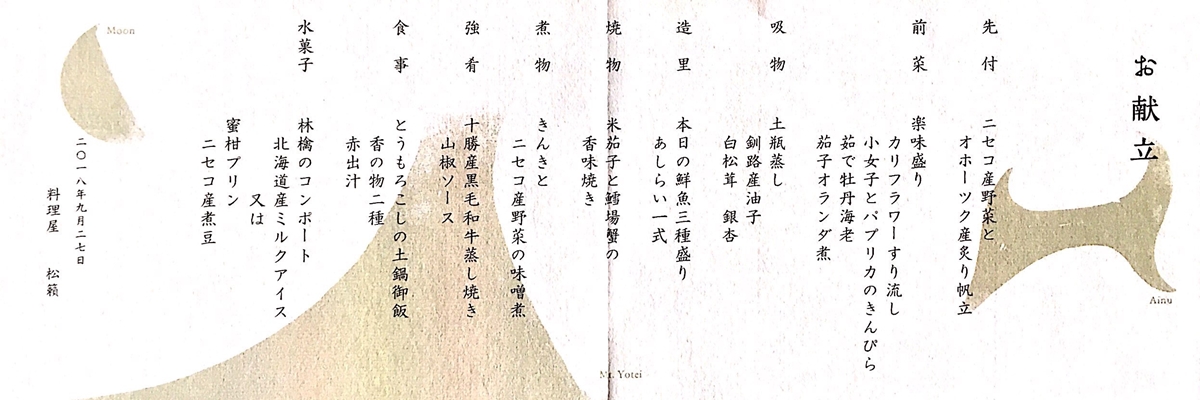 お献立
先付
二セコ産野菜と
オホーツク産炙り帆立
前菜
楽味盛り
カリフラワーすり流し
小女子とパプリカのきんぴら
茹で牡丹海老
茄子オランダ煮
吸物
土瓶蒸し
釧路産油子
白松茸　銀杏
造里
本日の鮮魚三種盛り
あしらい一式
焼物
米茄子と鱈場蟹の
香味焼き
煮物
きんきと
ニセコ産野菜の味噌煮
強肴
十勝産黒毛和牛蒸し焼き
山椒ソース
食事
とうもろこしの土鍋御飯
香の物二種
赤出汁
水菓子
林檎のコンポート
北海道産ミルクアイス
又は
蜜柑プリン
ニセコ産煮豆
二〇一八年九月二七日
料理屋　松籟
Ainu
Mt. Yotei
Moon